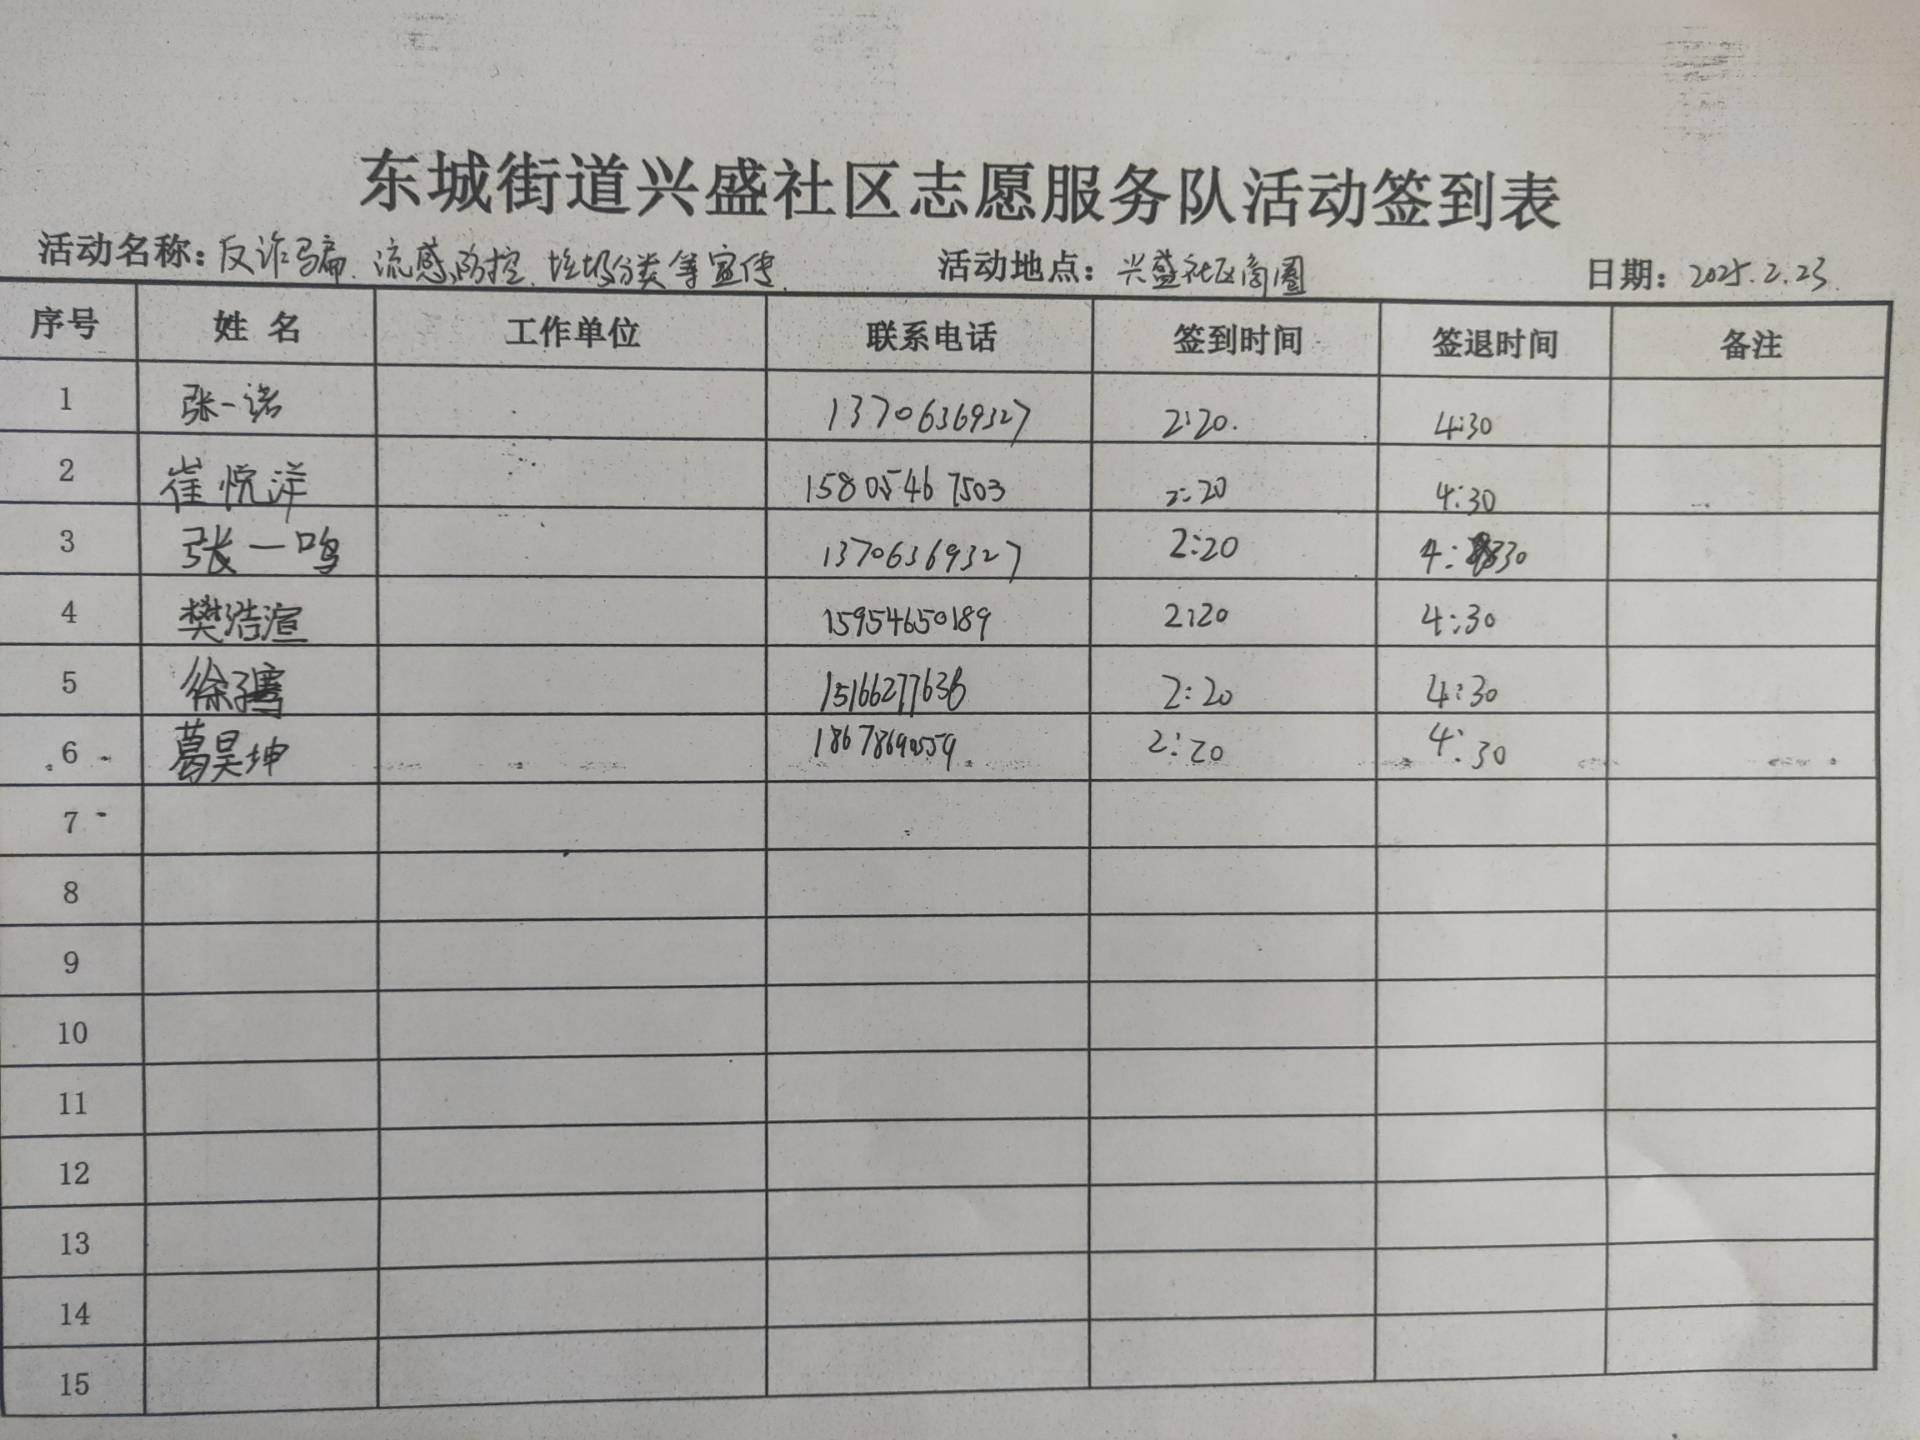 东城街道兴盛社区志愿服务队活动签到表
活动名称：反诈骗、流感防控、垃圾分类等宣传 活动地点：兴盛社区商圈 日期：2025.2.23
序号 姓名 工作单位 联系电话 签到时间 签退时间 备注
1 张一诺 13706369327 2:20. 4:30
2 崔悦洋 15805467503 2:20 4:30
3 张一鸣 13706369327 2:20 4:30
4 樊浩渲 15954650189 2:20 4:30
5 徐子骞 2:20 4:30
6 葛昊坤 2:20 4:30
7
8
9
10
11
12
13
14
15